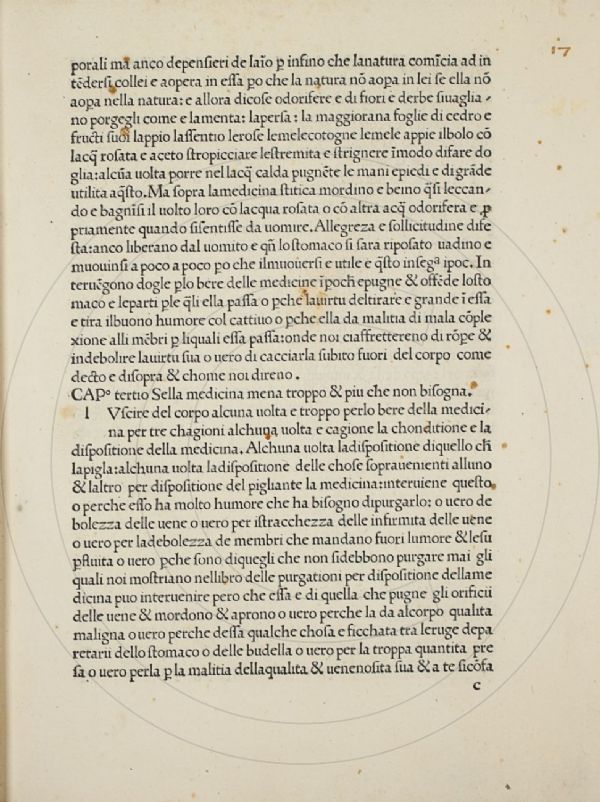 17
porali ma anco depensieri de laīo ꝑ infino che lanatura comīcia ad in
tēdersi collei e aopera in essa po che la natura nō aopa in lei se ella nō
aopa nella natura: e allora dicose odorifere e di fiori e derbe siuaglia,
no porgegli come e lamenta: lapersa: la maggiorana foglie di cedro e
fructi suoi lappio lassentio lerose lemelecotogne lemele appie ilbolo cō
lacq̄ rosata e aceto stropicciare lestremita e strignere īmodo difare do
glia: alcūa uolta porre nel lacq̄ calda pugnēte le mani epiedi e di grāde
utilita aq̄sto. Ma sopra lamedicina stitica mordino e beino q̄si leccan-
do e bagnīsi il uolto loro cō lacqua rosata o cō altra acq̄ odorifera e ꝓ
priamente quando sisentisse da uomire. Allegreza e sollicitudine dife
sta: anco liberano dal uomito e qn̄ lostomaco si sara riposato uadino e
muouinsi a poco a poco po che ilmuouersi e utile e q̄sto insegᵃ ipoc. In
teruēgono dogle ꝑlo bere delle medicine īpoch̄ epugne & offēde losto
maco e leparti ꝑle q̄li ella passa o ꝑche lauirtu deltirare e grande ī essa
e tira ilbuono humore col cattiuo o ꝑche ella da malitia di mala cōple
xione alli mēbri ꝑ liquali essa passa: onde noi ciaffrettereno di rōꝑe &
indebolire lauirtu sua o uero di cacciarla subito fuori del corpo come
decto e disopra & chome noi direno.
CAPᵒ tertio Sella medicina mena troppo & piu che non bisogna.
l Vscire del corpo alcuna uolta e troppo perlo bere della medici,
na per tre chagioni alchuna uolta e cagione la chonditione e la
dispositione della medicina. Alchuna uolta ladispositione diquello ch̄
lapigla: alchuna uolta ladispositione delle chose soprauenienti alluno
& laltro per dispositione del pigliante la medicina: interuiene questo
o perche esso ha molto humore che ha bisogno dipurgarlo: o uero de
bolezza delle uene o uero per istracchezza delle infirmita delle uene
o uero per ladebolezza de membri che mandano fuori lumore & lesu
ꝑfluita o uero ꝑche sono diquegli che non sidebbono purgare mai gli
quali noi mostriano nellibro delle purgationi per dispositione dellame
dicina puo interuenire pero che essa e di quella che pugne gli orificii
delle uene & mordono & aprono o uero perche la da alcorpo qualita
maligna o uero perche dessa qualche chosa e ficchata tra leruge depa
retarii dello stomaco o delle budella o uero per la troppa quantita pre
sa o uero perla ꝑ la malitia dellaqualita & uenenosita sua & a te sicōfa
c